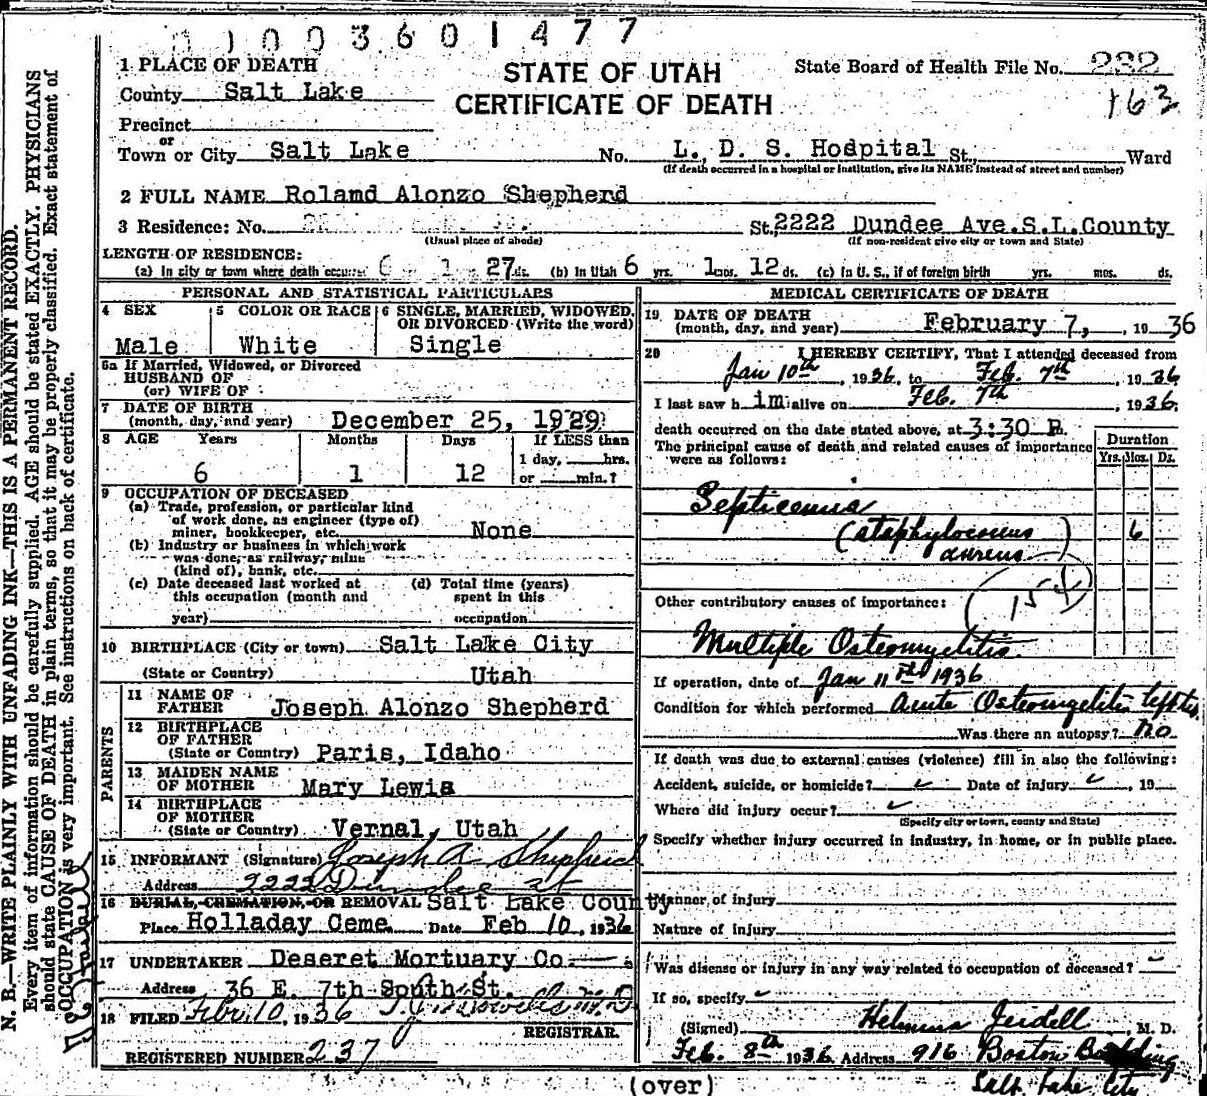 1003601477
1 PLACE OF DEATH
STATE OF UTAH
CERTIFICATE OF DEATH
State Board of Health File No. 232
163
County Salt Lake
Precinct
or
Town or City Salt Lake No. L. D. S. Hospital St., Ward
(If death occurred in a hospital or institution, give its NAME instead of street and number)
2 FULL NAME Rolamd Alonzo Shepherd
3 Residence: No. St. 2222 Dundee Ave.S.L.County
(Usual place of abode) (If non-resident give city or town and State)
LENGTH OF RESIDENCE:
(a) In city or town where death occurred 6 1 27 ds. (b) In Utah 6 yrs. 1 mos. 12 ds. (c) In U. S., if of foreign birth yrs. mos. ds.
PERSONAL AND STATISTICAL PARTICULARS
4 SEX 5 COLOR OR RACE 6 SINGLE, MARRIED, WIDOWED, OR DIVORCED (Write the word)
Male White Single
6a If Married, Widowed, or Divorced
HUSBAND OF
(or) WIFE OF
7 DATE OF BIRTH
(month, day, and year) December 25, 1929
8 AGE Years Months Days If LESS than
1 day, hrs.
6 1 12 or min.?
9 OCCUPATION OF DECEASED
(a) Trade, profession, or particular kind
of work done, as engineer (type of)
miner, bookkeeper, etc. None
(b) Industry or business in which work
was done, as railway, mine
(kind of), bank, etc.
(c) Date deceased last worked at (d) Total time (years)
this occupation (month and spent in this
year) occupation
10 BIRTHPLACE (City or town) Salt Lake City
(State or Country) Utah
PARENTS
11 NAME OF
FATHER Joseph Alonzo Shepherd
12 BIRTHPLACE
OF FATHER
(State or Country) Paris, Idaho
13 MAIDEN NAME
OF MOTHER Mary Lewis
14 BIRTHPLACE
OF MOTHER
(State or Country) Vernal, Utah
15 INFORMANT (Signature) Joseph A Shepherd
Address 2222 Dundee St
16 BURIAL, CREMATION, OR REMOVAL Salt Lake County
Place Holladay Ceme. Date Feb 10, 1936
17 UNDERTAKER Deseret Mortuary Co
Address 36 E. 7th South St.
18 FILED Febr. 10, 1936 M. D
REGISTRAR.
REGISTERED NUMBER 237
MEDICAL CERTIFICATE OF DEATH
19 DATE OF DEATH
(month, day, and year) February 7, , 1936
20 I HEREBY CERTIFY, That I attended deceased from
Jan 10th , 1936, to Feb. 7th , 1936
I last saw him alive on Feb. 7th , 1936.
death occurred on the date stated above, at 3:30 P.m.
The principal cause of death and related causes of importance
were as follows:
Duration
Yrs. Mos. Ds.
Septicemia
(staphylococcus 6
aureus)
Other contributory causes of importance:
Multiple Osteomyelitis.
If operation, date of Jan 11th 1936
Condition for which performed Acute Osteomyelitis left
Was there an autopsy? no
If death was due to external causes (violence) fill in also the following:
Accident, suicide, or homicide? ✓ Date of injury ✓, 19
Where did injury occur? ✓
(Specify city or town, county and State)
Specify whether injury occurred in industry, in home, or in public place.
Manner of injury
Nature of injury
Was disease or injury in any way related to occupation of deceased?
If so, specify
(Signed) , M. D.
Feb. 8th 1936 Address 916 Boston Building
Salt Lake City
(over)
N. B.—WRITE PLAINLY WITH UNFADING INK—THIS IS A PERMANENT RECORD.
Every item of information should be carefully supplied. AGE should be stated EXACTLY. PHYSICIANS
should state CAUSE OF DEATH in plain terms, so that it may be properly classified. Exact statement of
OCCUPATION is very important. See instructions on back of certificate.